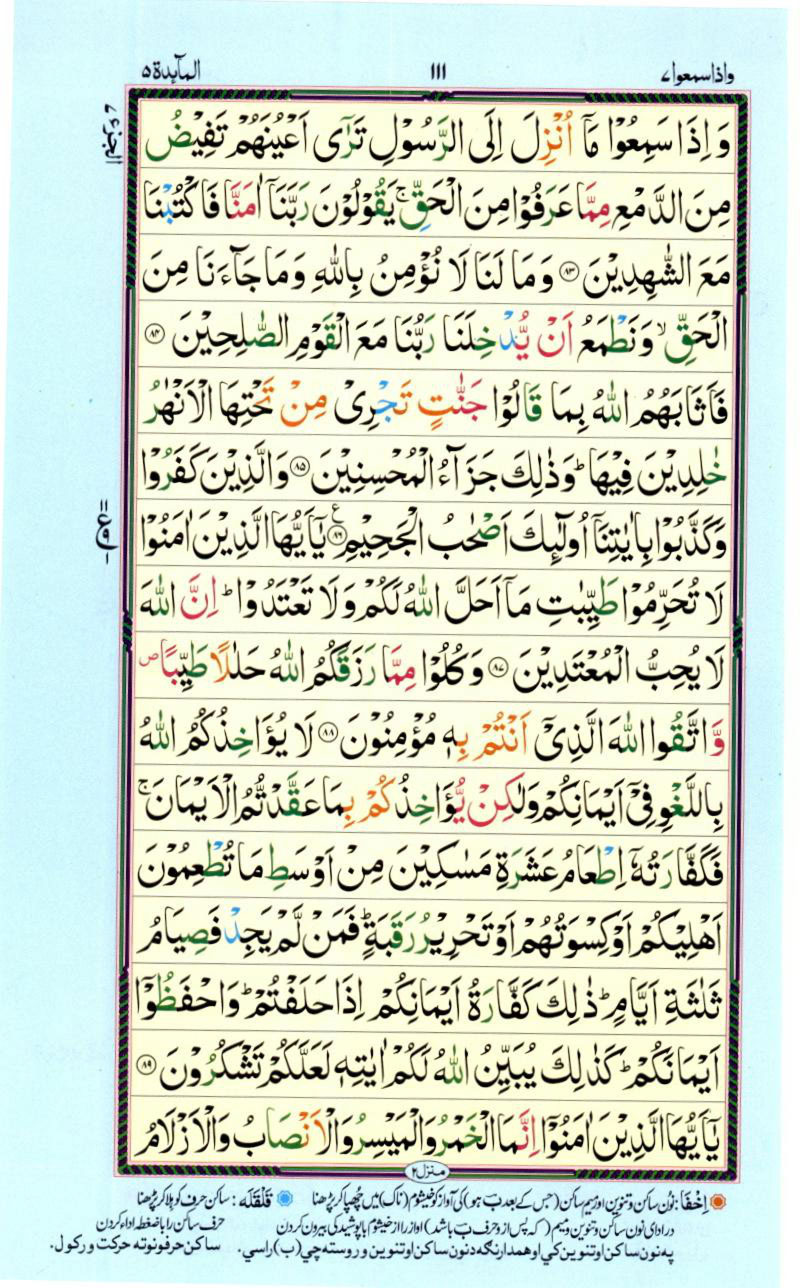 واذاسمعوا۷ ۱۱۱ المآىِٕدة۵
الجزء ۷
وَ اِذَا سَمِعُوْا مَاۤ اُنْزِلَ اِلَى الرَّسُوْلِ تَرٰۤى اَعْیُنَهُمْ تَفِیْضُ
مِنَ الدَّمْعِ مِمَّا عَرَفُوْا مِنَ الْحَقِّ ۚ یَقُوْلُوْنَ رَبَّنَاۤ اٰمَنَّا فَاكْتُبْنَا
مَعَ الشّٰهِدِیْنَ ۸۳ وَ مَا لَنَا لَا نُؤْمِنُ بِاللّٰهِ وَ مَا جَآءَنَا مِنَ
الْحَقِّ ۙ وَ نَطْمَعُ اَنْ یُّدْخِلَنَا رَبُّنَا مَعَ الْقَوْمِ الصّٰلِحِیْنَ ۸۴
فَاَثَابَهُمُ اللّٰهُ بِمَا قَالُوْا جَنّٰتٍ تَجْرِیْ مِنْ تَحْتِهَا الْاَنْهٰرُ
خٰلِدِیْنَ فِیْهَا ؕ وَ ذٰلِكَ جَزَآءُ الْمُحْسِنِیْنَ ۸۵ وَ الَّذِیْنَ كَفَرُوْا
وَ كَذَّبُوْا بِاٰیٰتِنَاۤ اُولٰٓىِٕكَ اَصْحٰبُ الْجَحِیْمِ ۸۶ ع یٰۤاَیُّهَا الَّذِیْنَ اٰمَنُوْا
لَا تُحَرِّمُوْا طَیِّبٰتِ مَاۤ اَحَلَّ اللّٰهُ لَكُمْ وَ لَا تَعْتَدُوْا ؕ اِنَّ اللّٰهَ
لَا یُحِبُّ الْمُعْتَدِیْنَ ۸۷ وَ كُلُوْا مِمَّا رَزَقَكُمُ اللّٰهُ حَلٰلًا طَیِّبًا ص
وَّ اتَّقُوا اللّٰهَ الَّذِیْۤ اَنْتُمْ بِهٖ مُؤْمِنُوْنَ ۸۸ لَا یُؤَاخِذُكُمُ اللّٰهُ
بِاللَّغْوِ فِیْۤ اَیْمَانِكُمْ وَ لٰكِنْ یُّؤَاخِذُكُمْ بِمَا عَقَّدْتُّمُ الْاَیْمَانَ ۚ
فَكَفَّارَتُهٗۤ اِطْعَامُ عَشَرَةِ مَسٰكِیْنَ مِنْ اَوْسَطِ مَا تُطْعِمُوْنَ
اَهْلِیْكُمْ اَوْ كِسْوَتُهُمْ اَوْ تَحْرِیْرُ رَقَبَةٍ ؕ فَمَنْ لَّمْ یَجِدْ فَصِیَامُ
ثَلٰثَةِ اَیَّامٍ ؕ ذٰلِكَ كَفَّارَةُ اَیْمَانِكُمْ اِذَا حَلَفْتُمْ ؕ وَ احْفَظُوْۤا
اَیْمَانَكُمْ ؕ كَذٰلِكَ یُبَیِّنُ اللّٰهُ لَكُمْ اٰیٰتِهٖ لَعَلَّكُمْ تَشْكُرُوْنَ ۸۹
یٰۤاَیُّهَا الَّذِیْنَ اٰمَنُوْۤا اِنَّمَا الْخَمْرُ وَ الْمَیْسِرُ وَ الْاَنْصَابُ وَ الْاَزْلَامُ
منزل۲
اِخْفَا: نون ساکن و تنوین اور میم ساکن (جس کے بعد بَ ہو) کی آواز کو خیشوم (ناک) میں چھپا کر پڑھنا قَلْقَلَه: ساکن حرف کو ہلا کر پڑھنا
در ادای نون ساکن و تنوین و میم (که پس از و حرف بَ باشد) اواز را از خیشوم با پوشیدگی بیرون کردن حرف ساکن را با ضغطه اداء کردن
په نون ساکن او تنوین کي او همدارنګه د نون ساکن او تنوین وروسته چي (ب) راسي. ساکن حرفو نو ته حرکت ورکول.